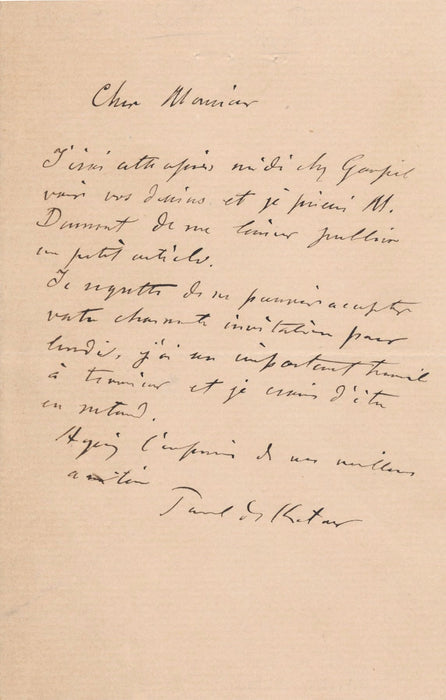 Cher Monsieur
J'irai cette après midi chez Goupil
voir vos dessins et je prierai M.
Dumont de me laisser publier
un petit article.
Je regrette de ne pouvoir accepter
votre charmante invitation pour
lundi, j'ai un important travail
à terminer et je crains d'être
en retard.
Agréez l'expression de mes meilleurs
amitiés